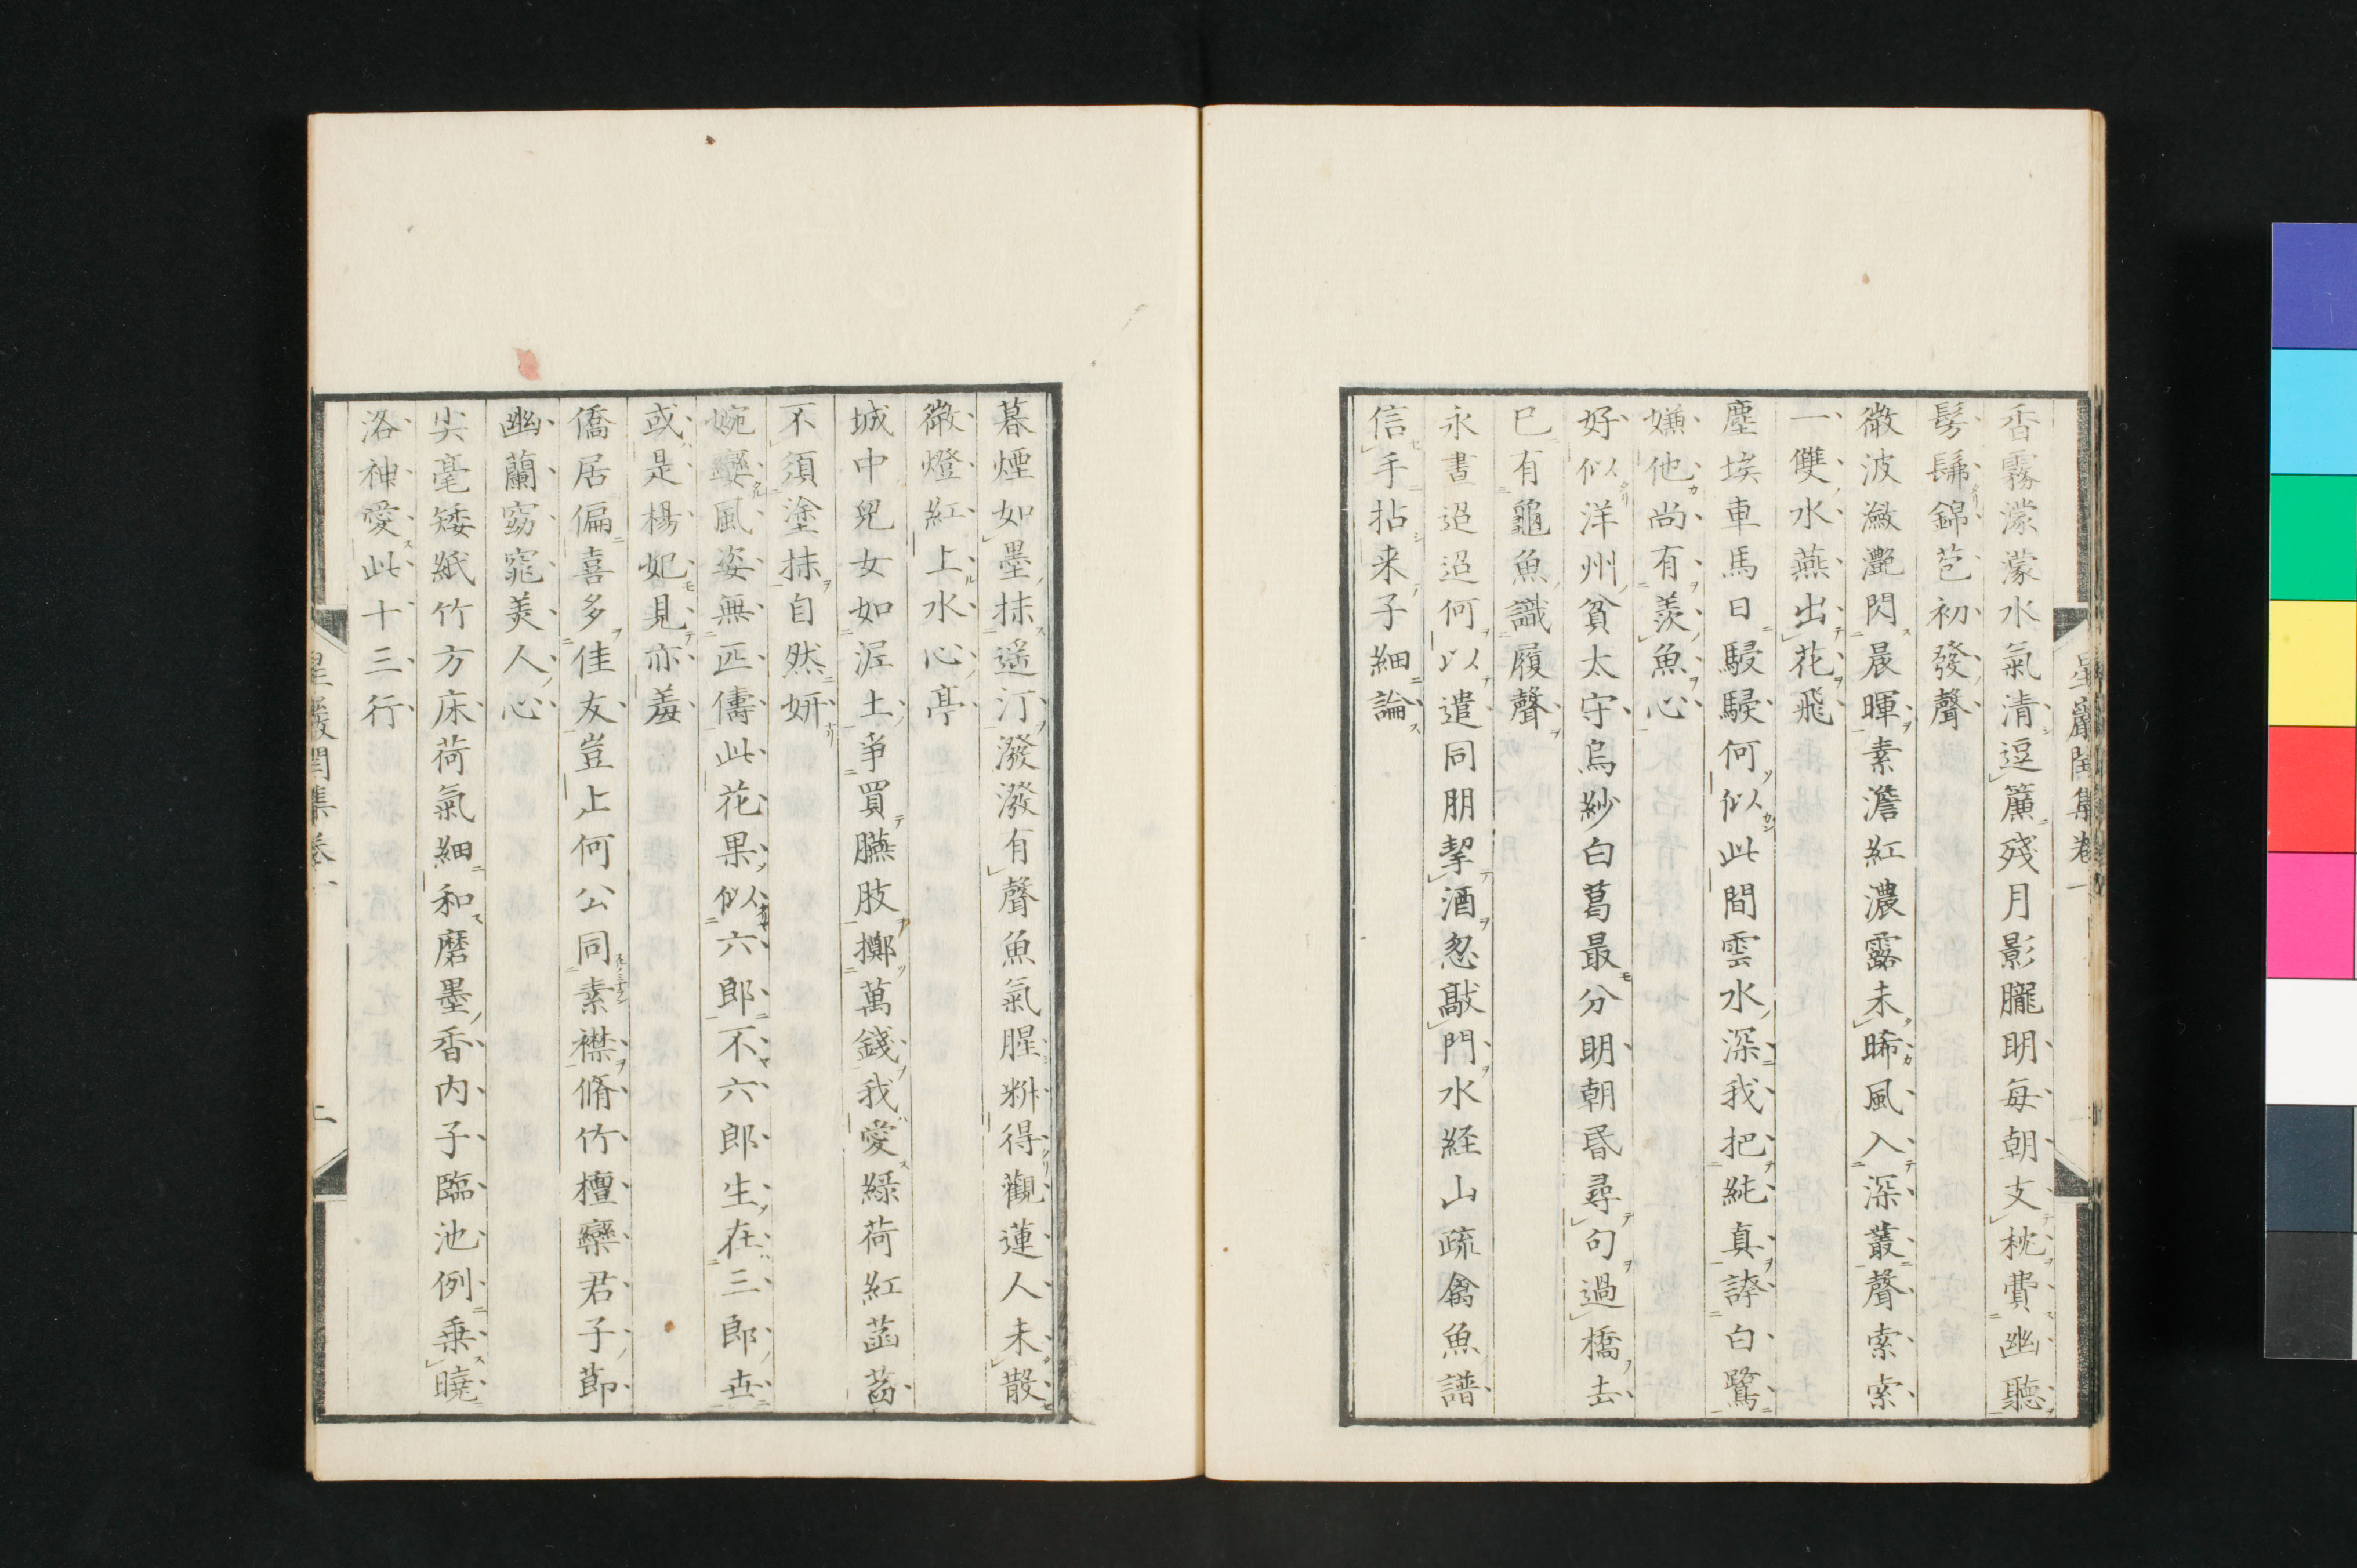 香霧濛濛水氣清逗簾殘月影朧明每朝支枕費幽聽
髣髴錦苞初發聲
微波瀲灔閃晨暉素澹紅濃露未晞風入深叢聲索索
一雙水燕出花飛
塵埃車馬日駸駸何似此間雲水深我把純真誇白鷺
嫌他尚有羨魚心
好似洋州貧太守烏紗白葛最分明朝昏尋句過橋去
已有龜魚識履聲
永晝迢迢何以遣同朋挈酒忽敲門水経山疏禽魚譜
信手拈来子細論
星巖閏集卷一
暮煙如墨抹遥汀潑潑有聲魚氣腥拚得觀蓮人未散
微燈紅上水心亭
城中兒女如渥土爭買臙肢擲萬錢我愛緑荷紅菡萏
不須塗抹自然妍
婉孌風姿無匹儔此花果似六郎不六郎生在三郎世
或是楊妃見亦羞
僑居偏喜多佳友豈止何公同素襟脩竹檀欒君子節
幽蘭窈窕美人心
尖毫矮紙竹方床荷氣細和磨墨香内子臨池例乗曉
洛神愛此十三行
星巖閏集卷一
二